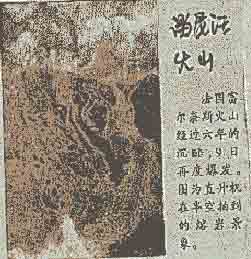 火山
法国富
尔奈斯火山
经过六年的
沉睡，9日
再度爆发。
图为直升机
在半空拍到
的熔岩景
象。